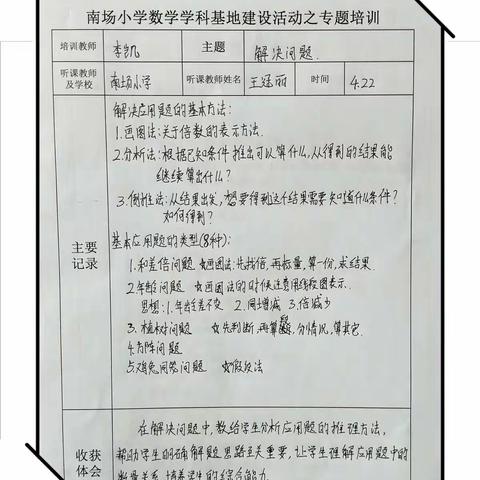 南场小学数学学科基地建设活动之专题培训
培训教师 李凯 主题 解决问题.
听课教师及学校 南场小学 听课教师姓名 王廷丽 时间 4.22
主要记录
解决应用题的基本方法:
1.画图法:关于倍数的表示方法.
2.分析法:根据已知条件推出可以算什么,从得到的结果能
继续算出什么?
3.倒推法:从结果出发,想要得到这个结果需要知道什么条件?
如何得到?
基本应用题的类型(8种):
1.和差倍问题 画图法:先找倍,再标量,算一份,求结果.
2.年龄问题 画图法的时候注意用线段图表示.
思想:1.年龄差不变 2.同增减 3.倍减少
3.植树问题 先判断,再算,分情况,算其它.
4.方阵问题
5.鸡兔同笼问题 假设法
收获体会
在解决问题中,教给学生分析应用题的推理方法,
帮助学生明确解题思路至关重要,让学生理解应用题中的
数量关系,培养学生的综合能力.